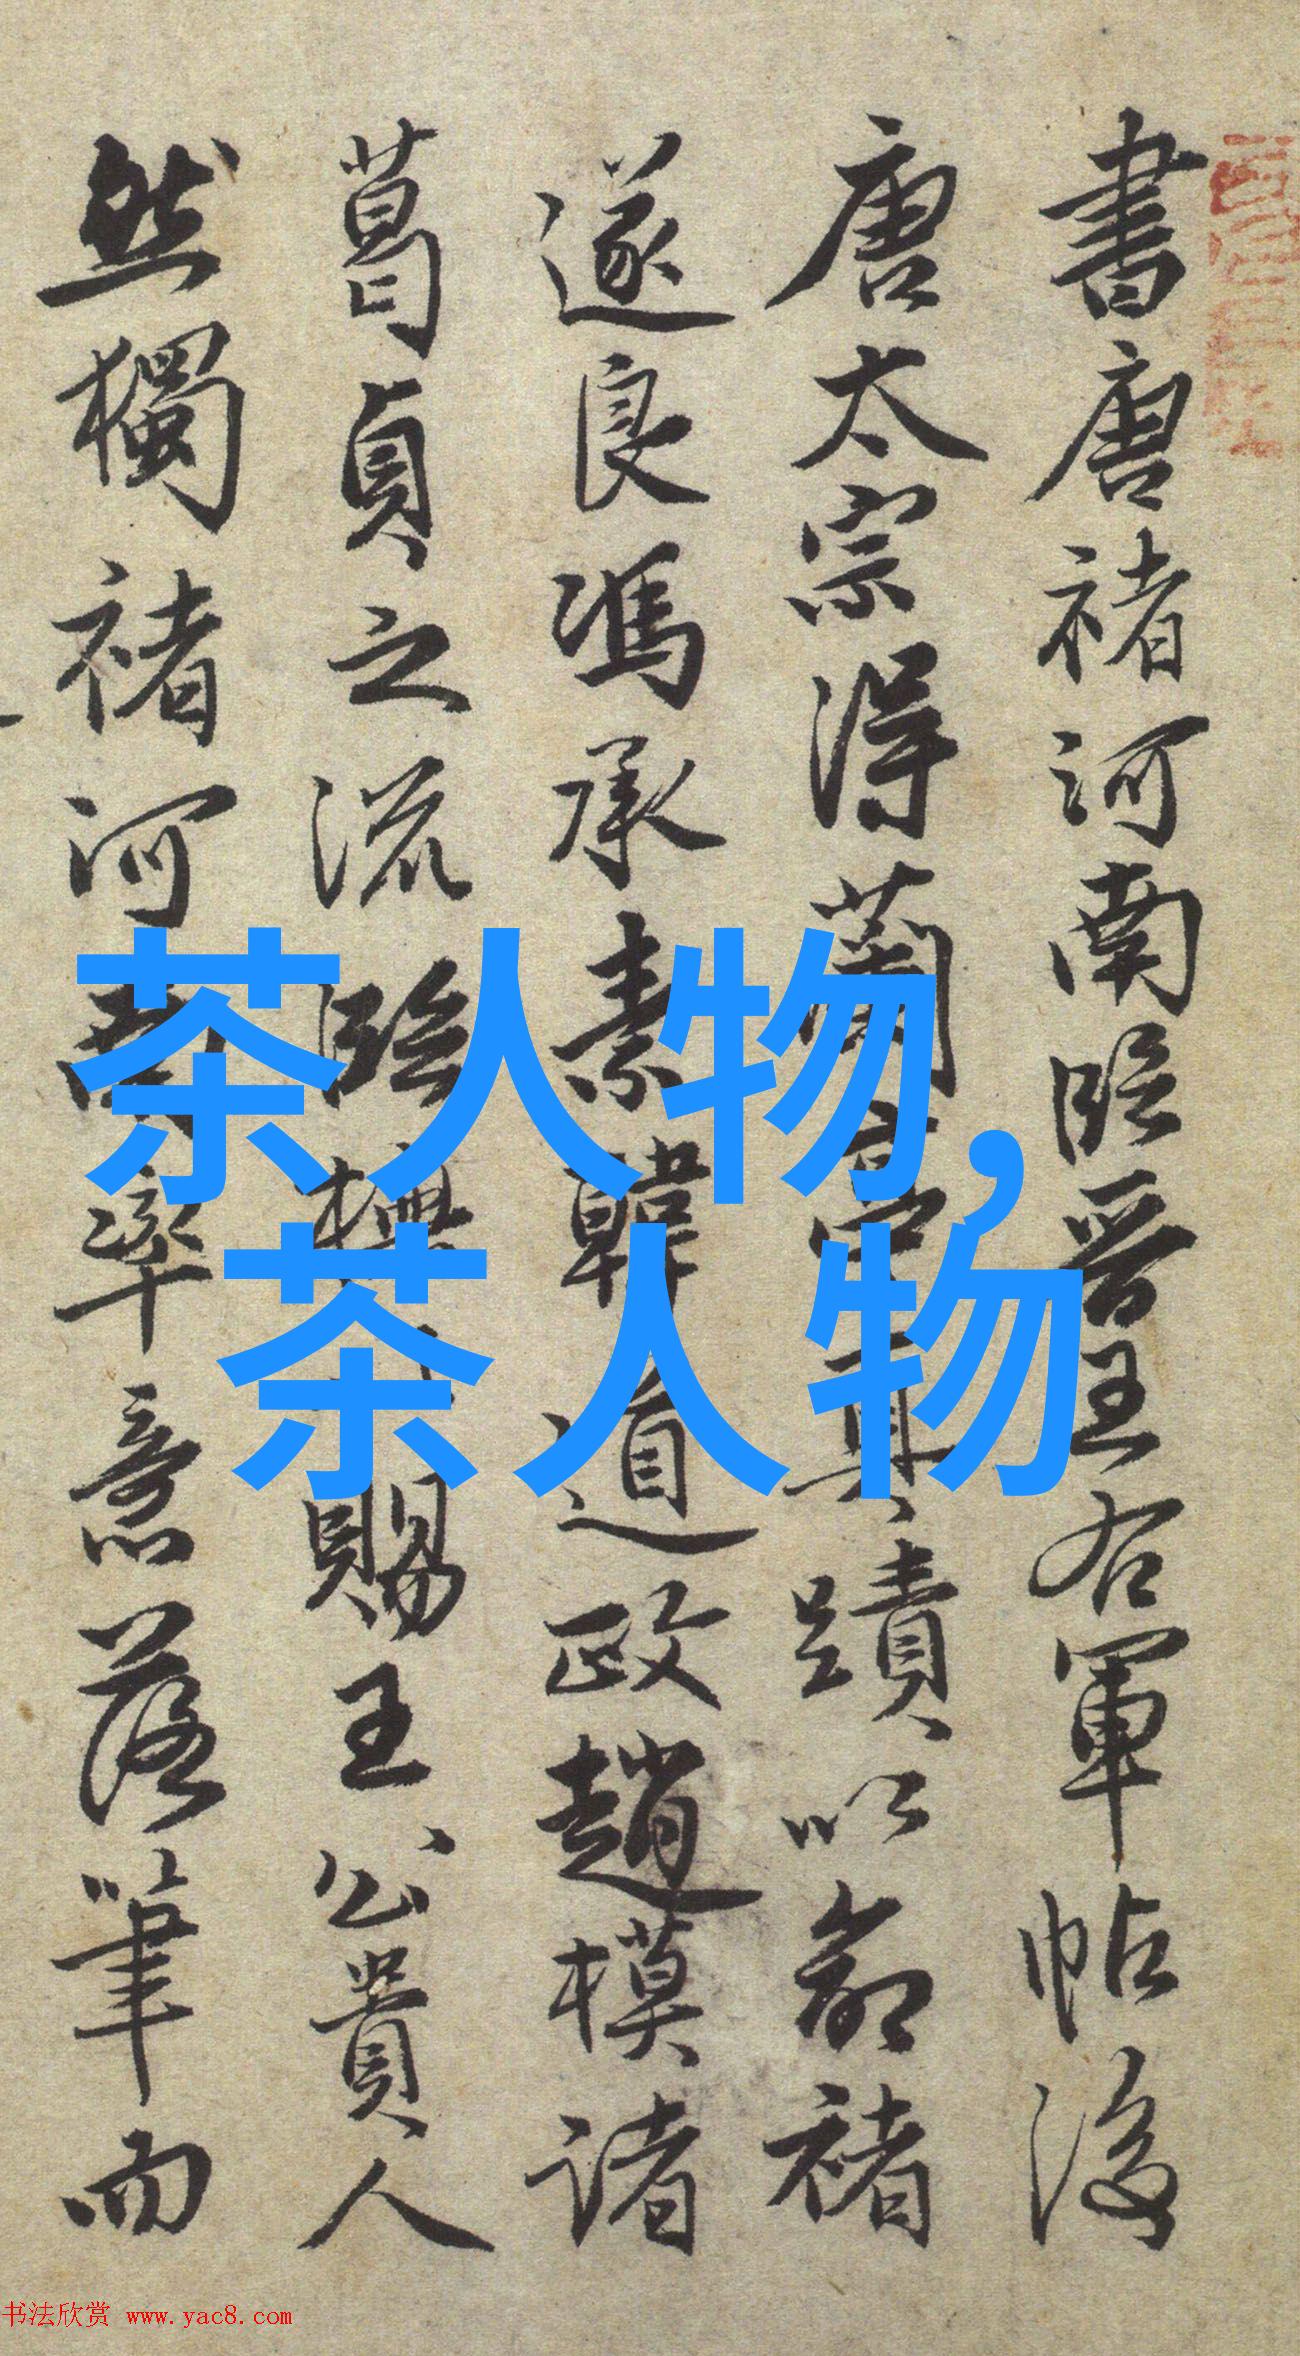 書唐褚河南臨晉王右軍帖後
唐太宗得蘭亭真蹟以命褚
遂良馮承素韓道政趙模諸
葛貞之流臨橅賜王公貴人
然獨褚河南率意落筆而
茶人物,
茶人物
书法欣赏 www.yac8.com